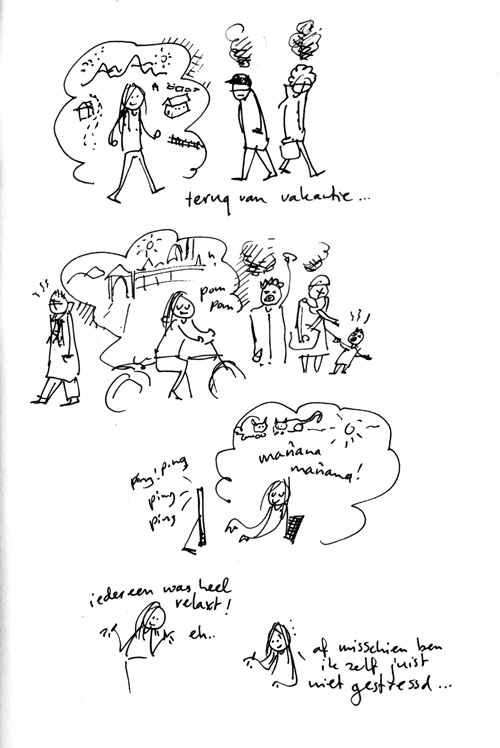 terug van vakantie...
pom
pom
ping! ping
ping
ping
mañana
mañana!
iedereen was heel
relaxt!
eh..
of misschien ben
ik zelf juist
niet gestressd...